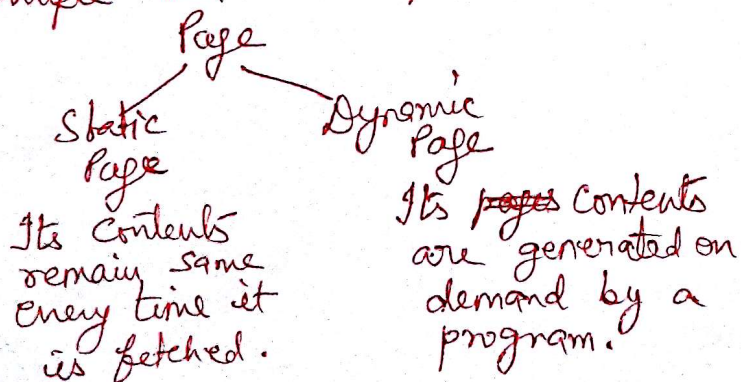 Page
Static
Page
Dynamic
Page
Its Contents
remain same
every time it
is fetched.
Its pages Contents
are generated on
demand by a
program.